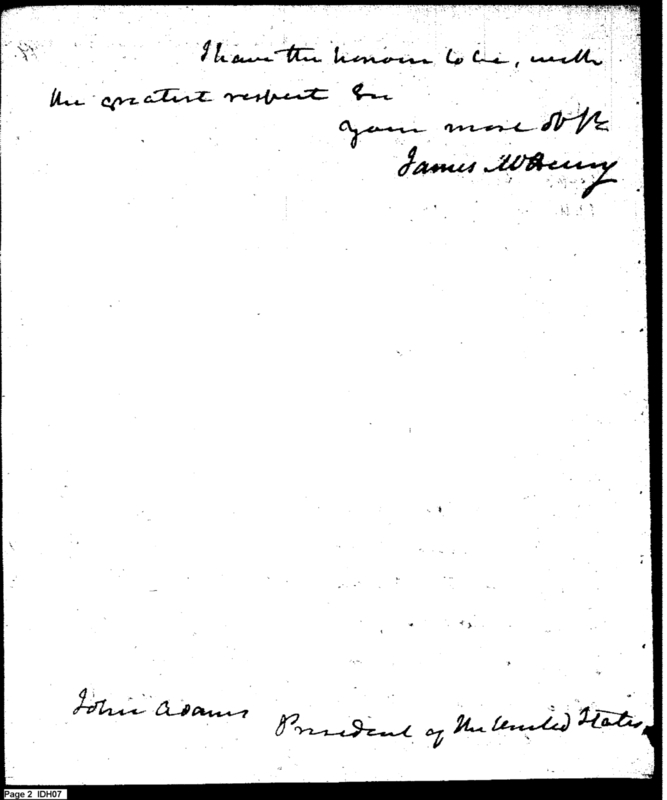 I have the honour to be, with
the greatest respect Sir
your most obt
James McHenry
John Adams
President of the United States.
Page 2 IDH07